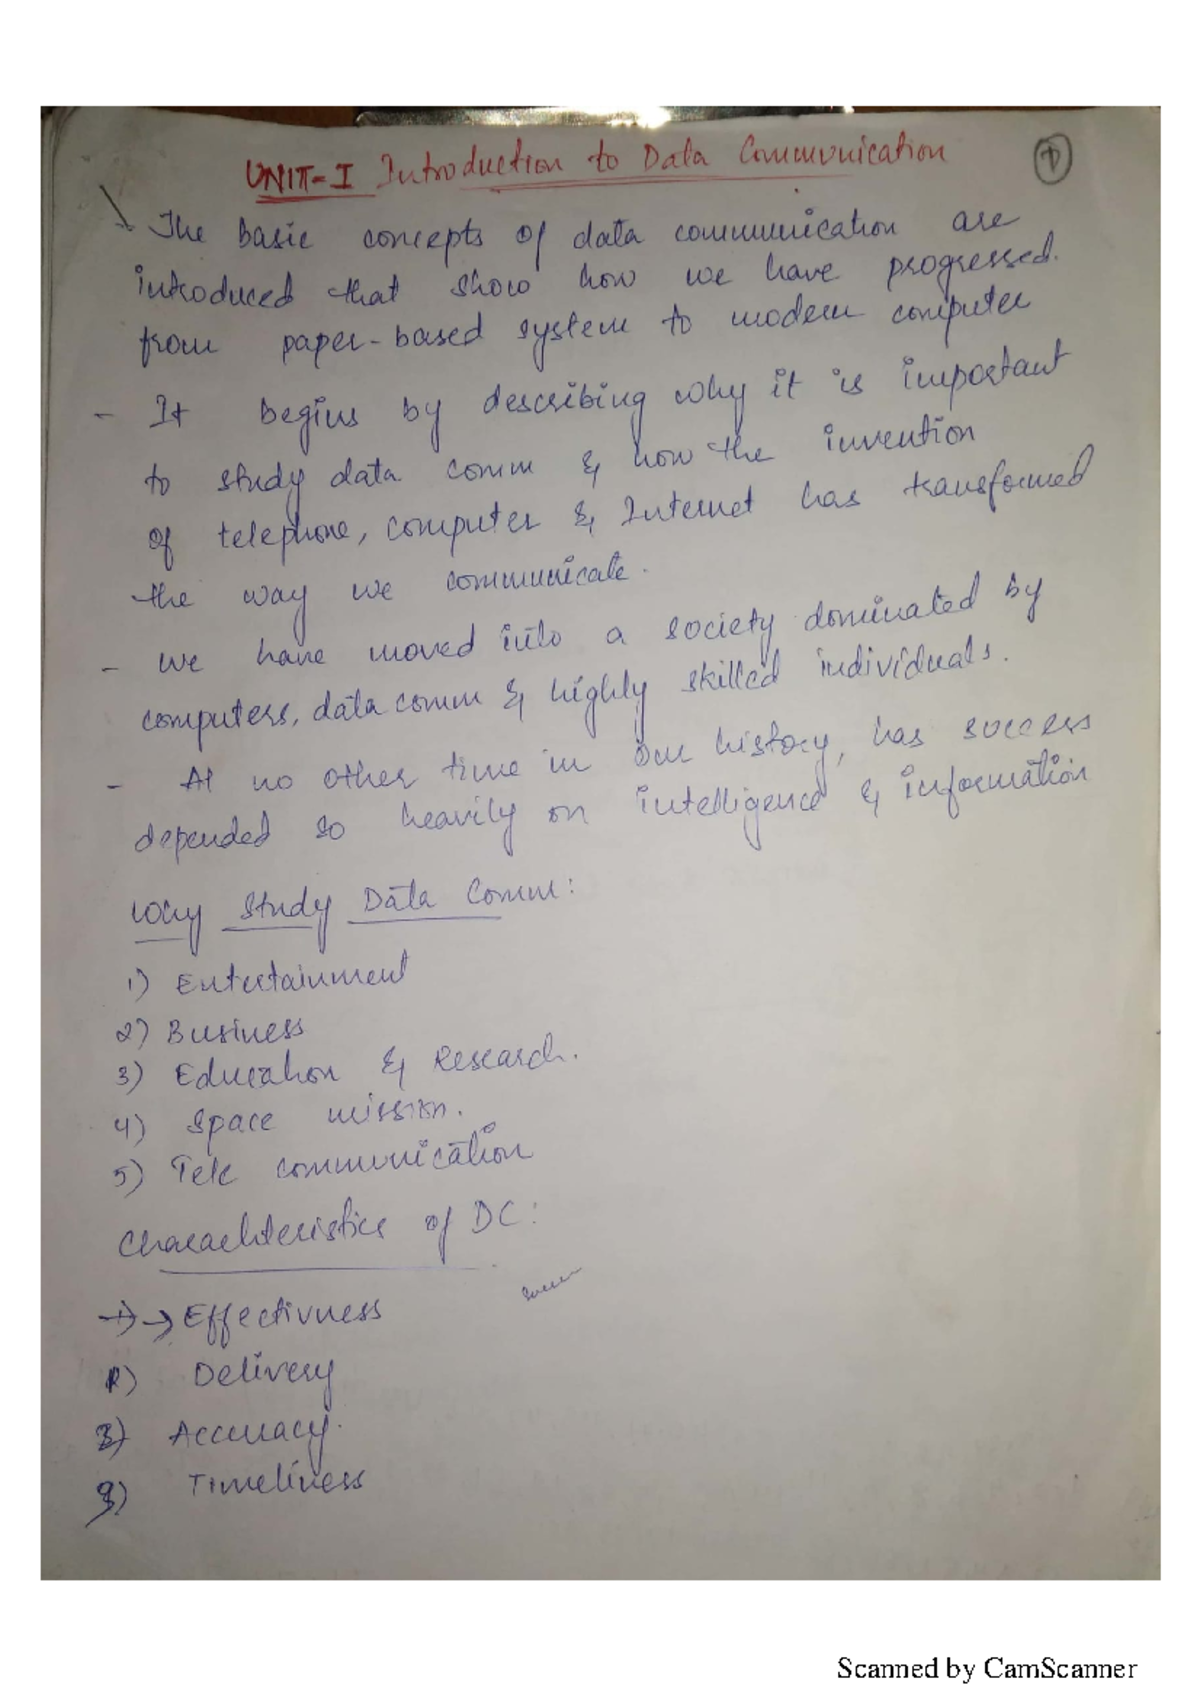 UNIT-I Introduction to Data Communication
The basic concepts of data communication are
introduced that show how we have progressed.
from paper-based system to modern computer
- It begins by describing why it is important
to study data comm & how the invention
of telephone, computer & Internet has transformed
the way we communicate.
- We have moved into a society dominated by
computers, data comm & highly skilled individuals.
- At no other time in our history, has success
depended so heavily on intelligence & information
Why Study Data Comm:
1) Entertainment
2) Business
3) Education & Research.
4) Space mission.
5) Tele communication
Charachteristics of DC:
→ Effectivness
Delivery
3) Accuracy.
Timeliness
Scanned by CamScanner